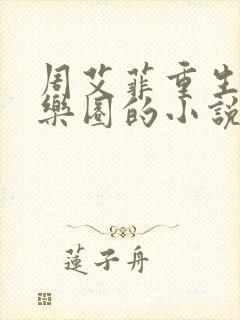 周艾菲重生
樂園的小說
蓮子舟